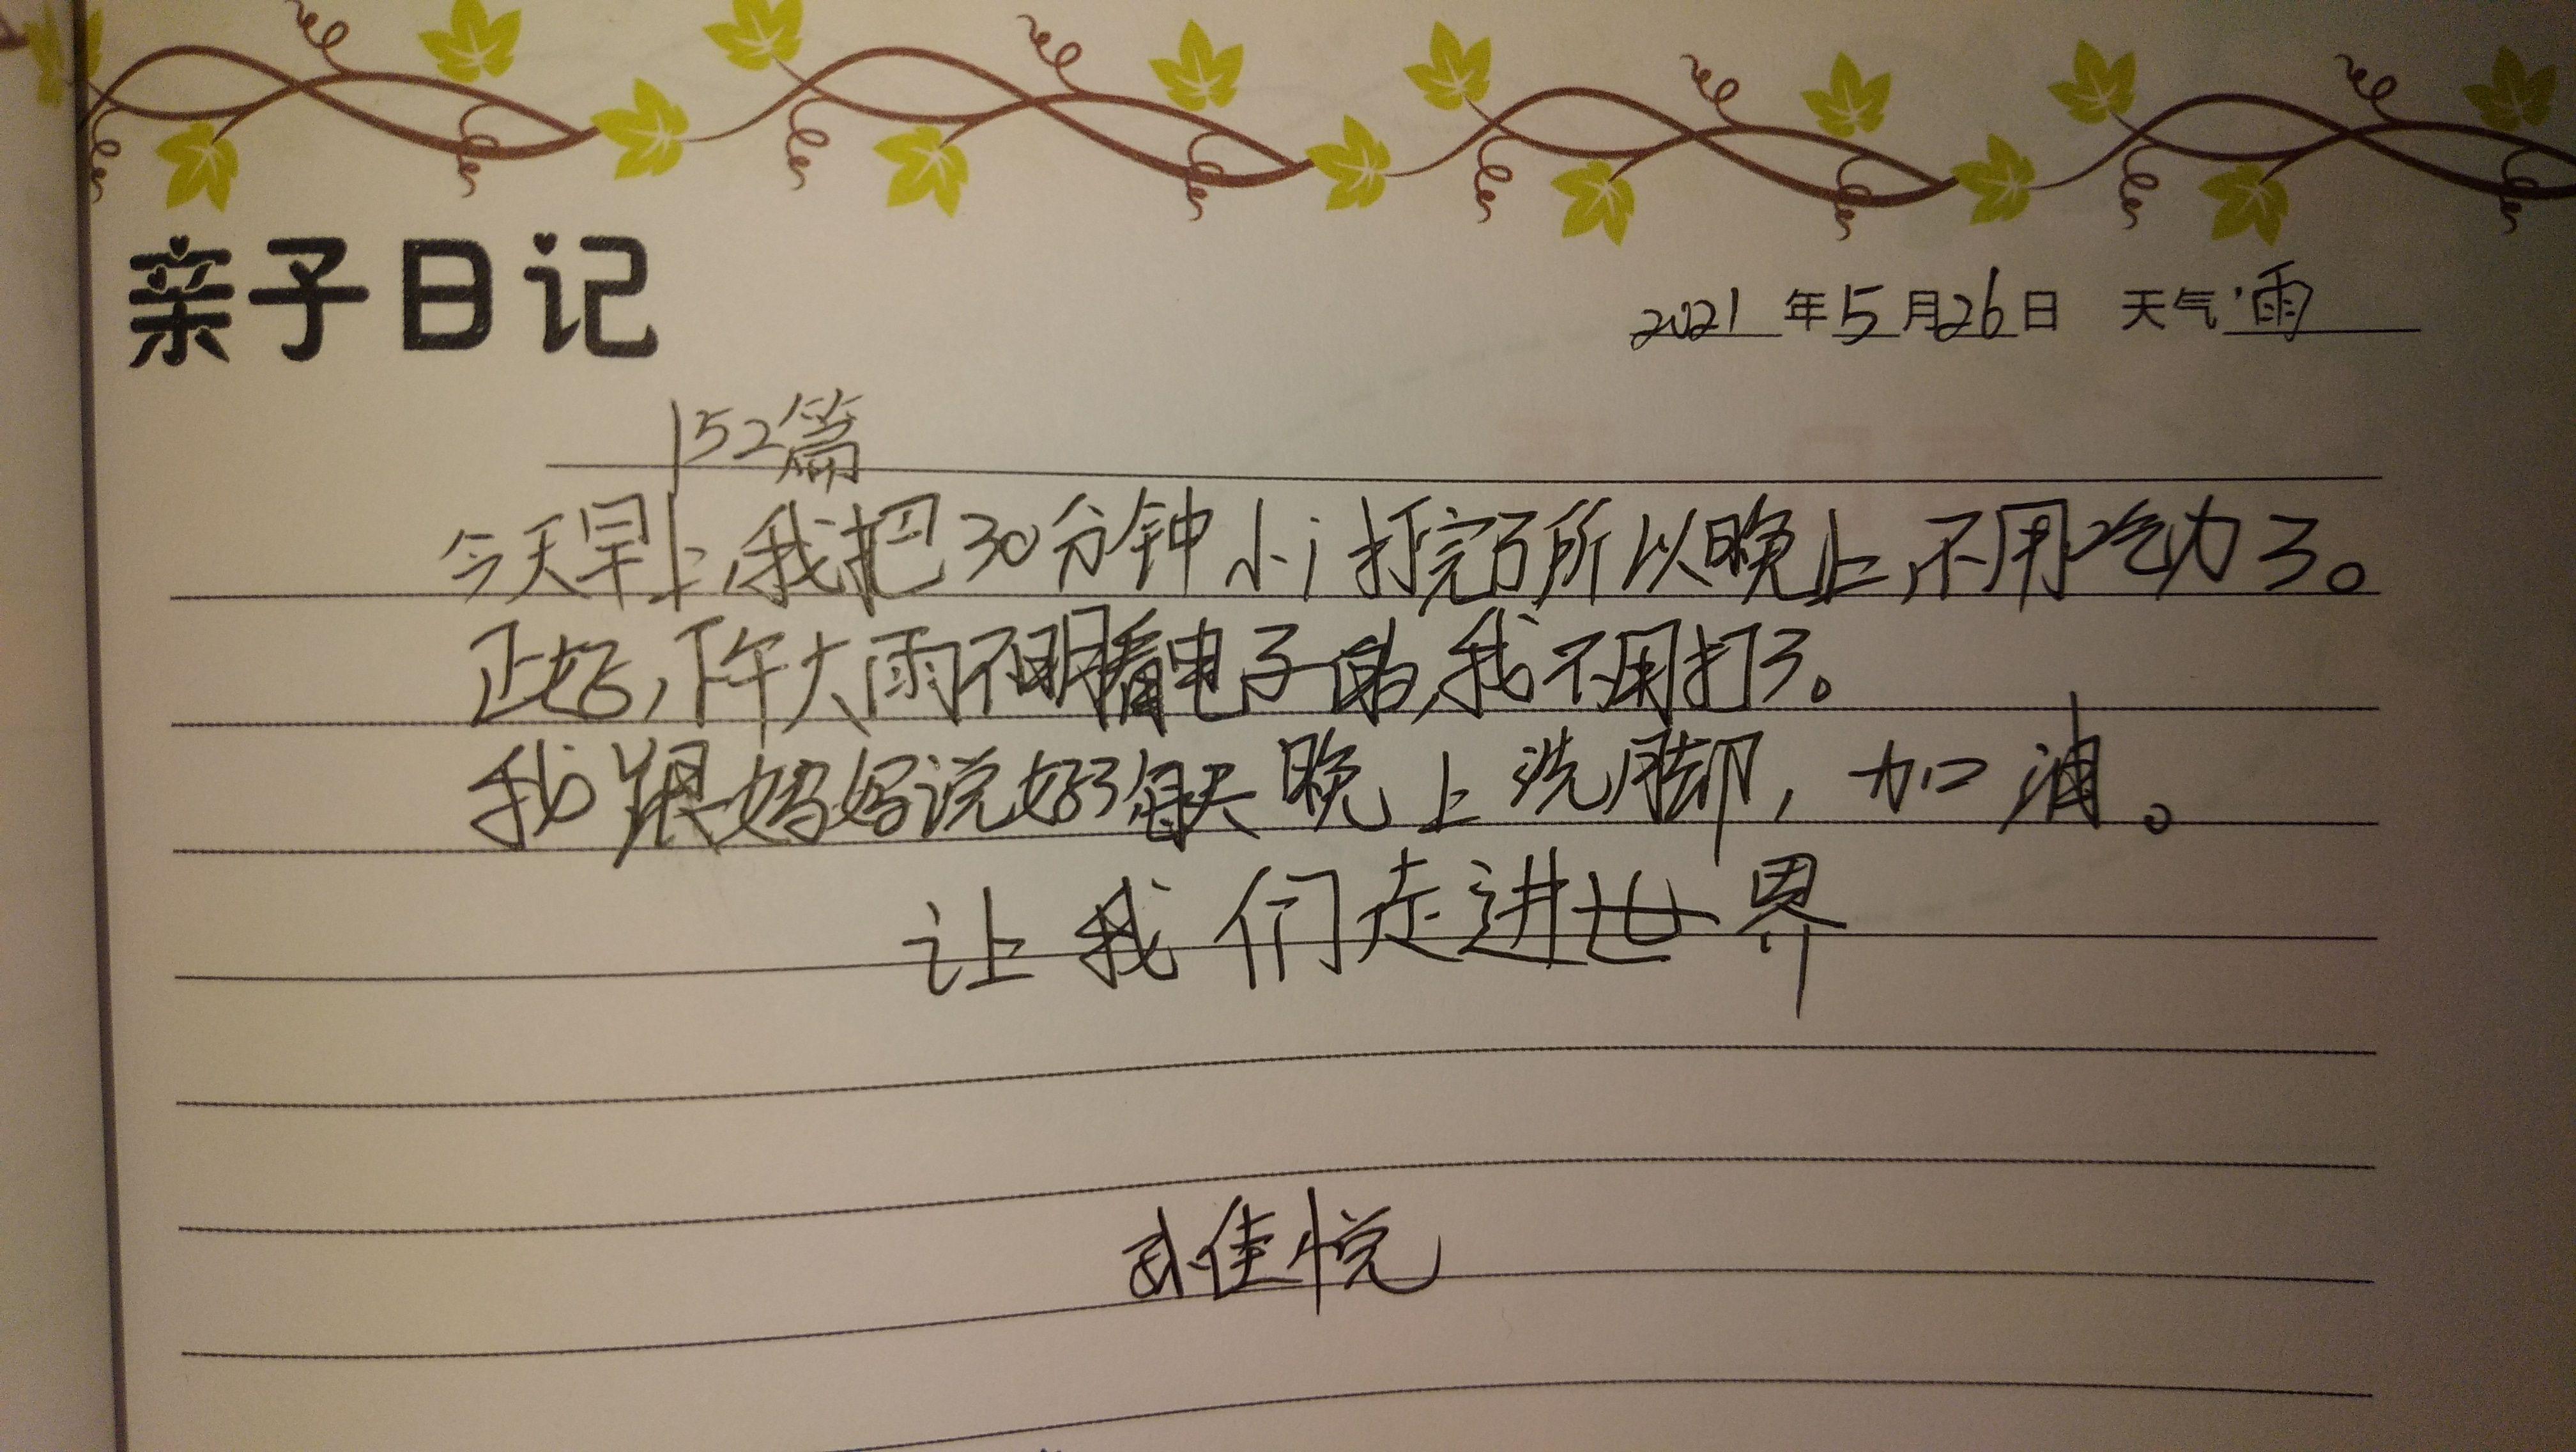 亲子日记
2021年5月26日 天气 雨
152篇
今天早上,我把30分钟小打完了所以晚上,不用吃力了。
正好,下午大雨不用看电子的,我不用打了。
我跟妈妈说好了每天晚上洗脚,加油。
让我们走进世界
武佳悦